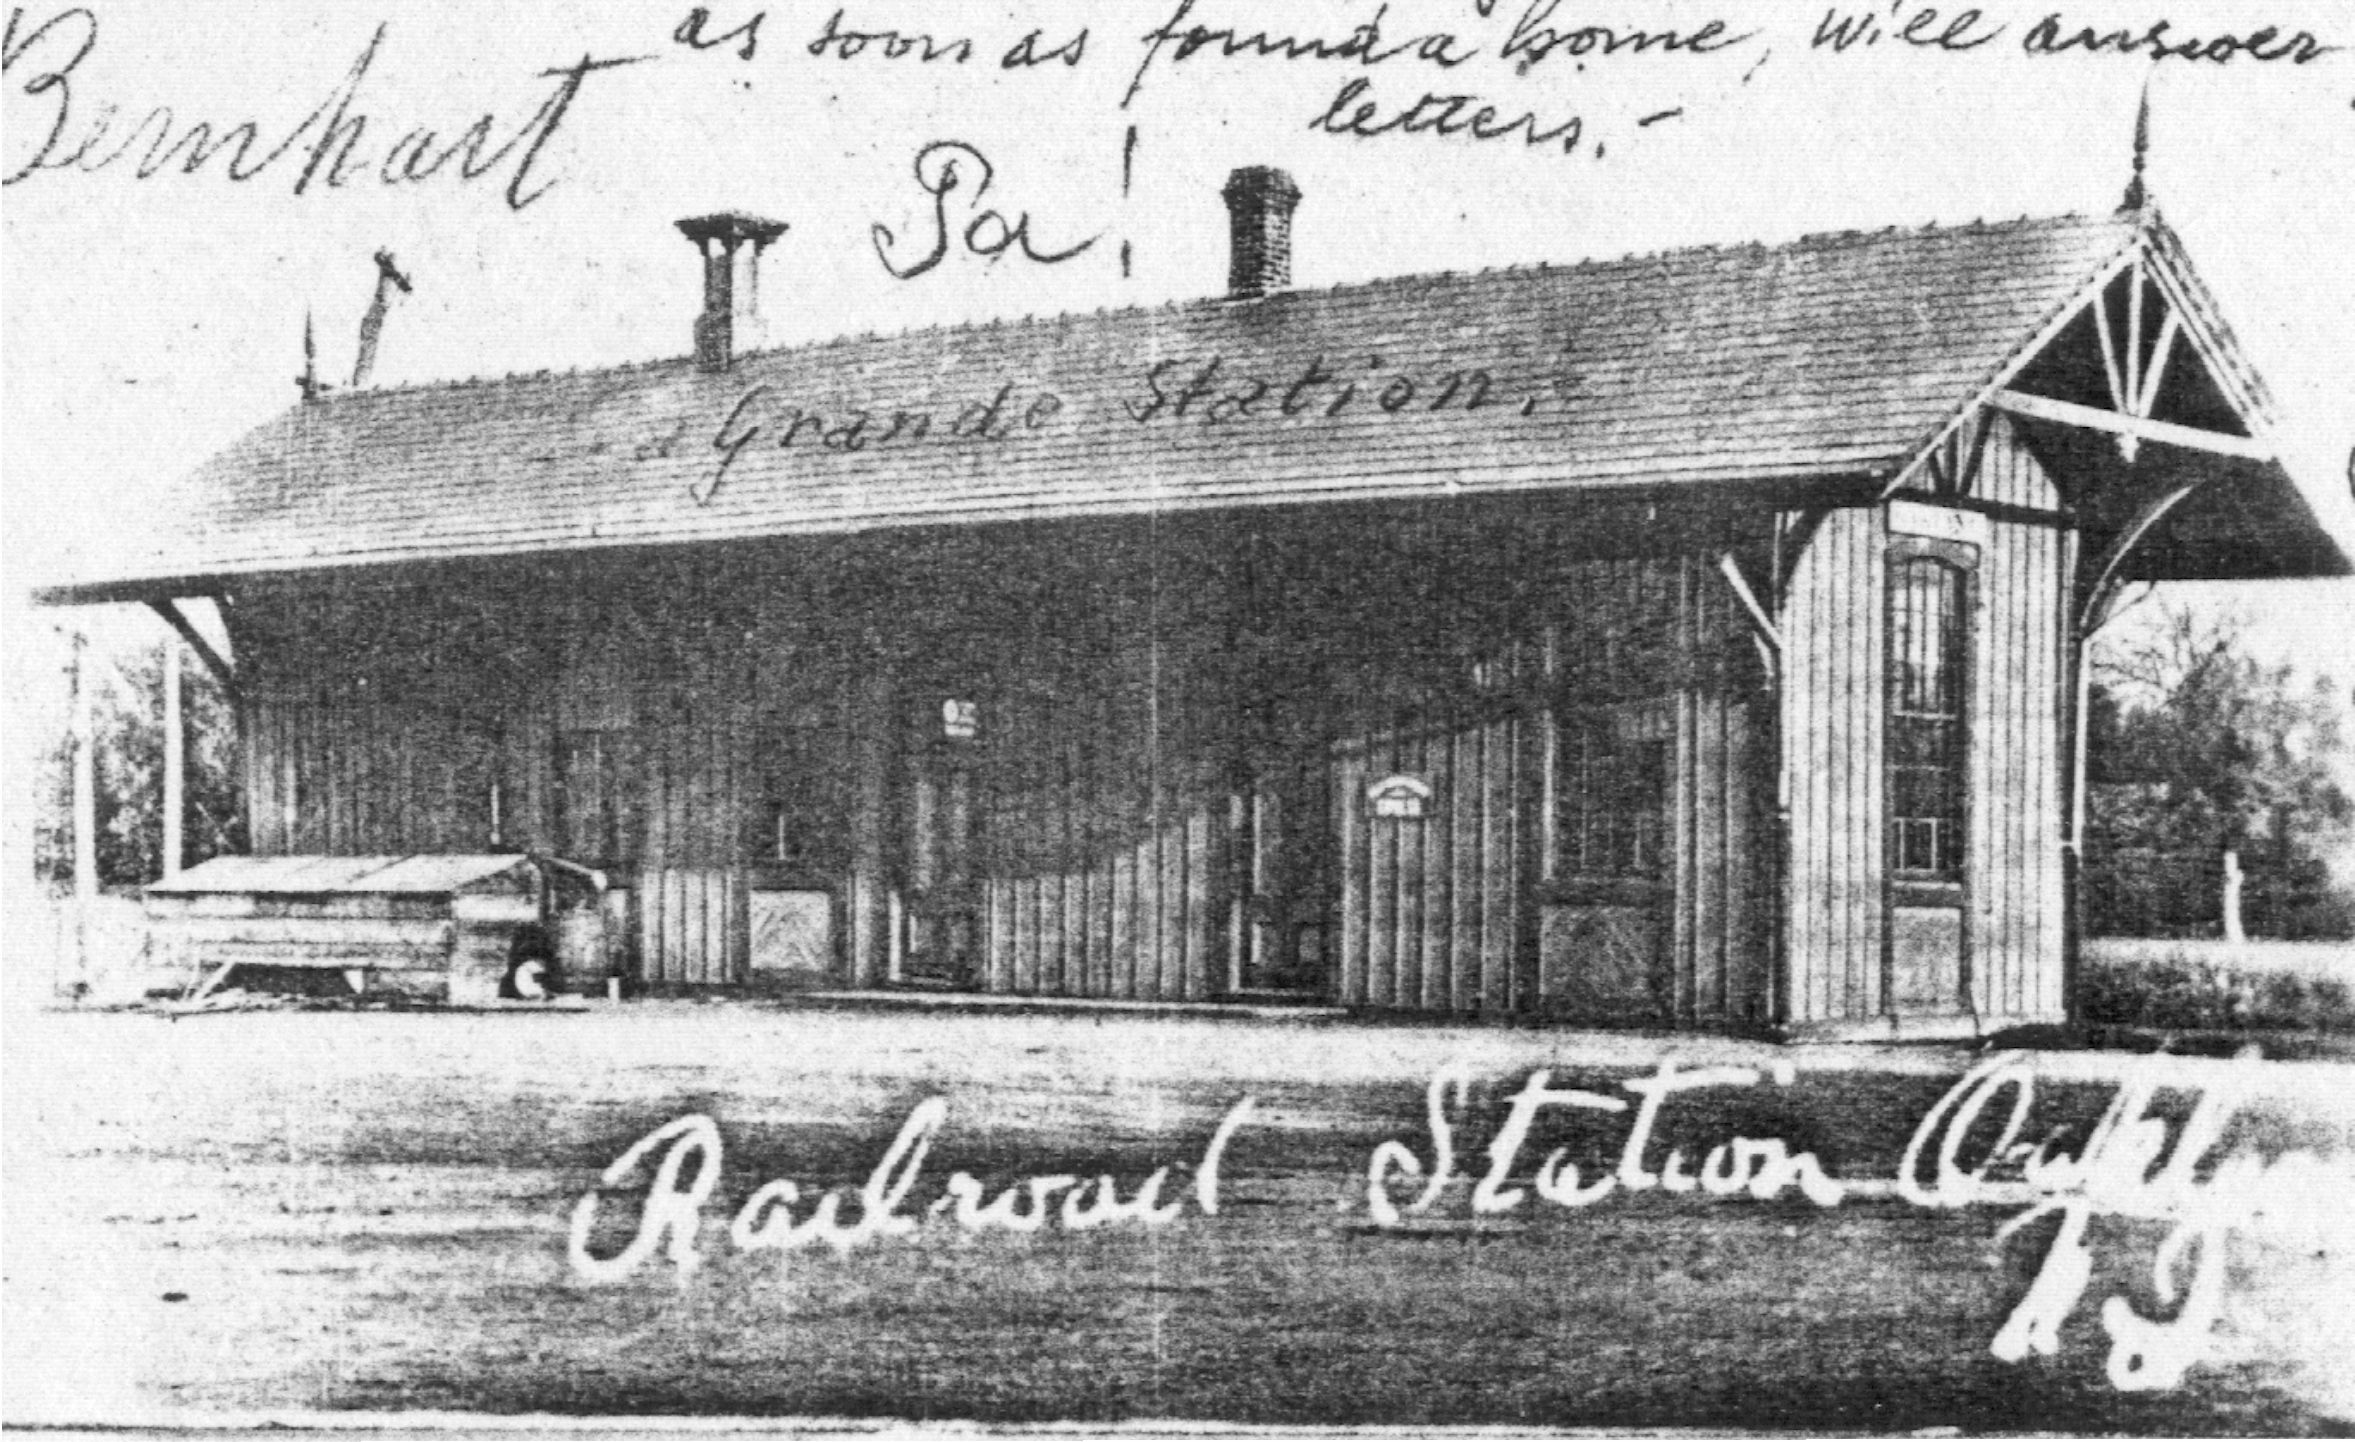 as soon as found a home, will answer
letters.-
Bernhart
Pa!
Grande Station.
Railroad Station Oaklyn
NJ